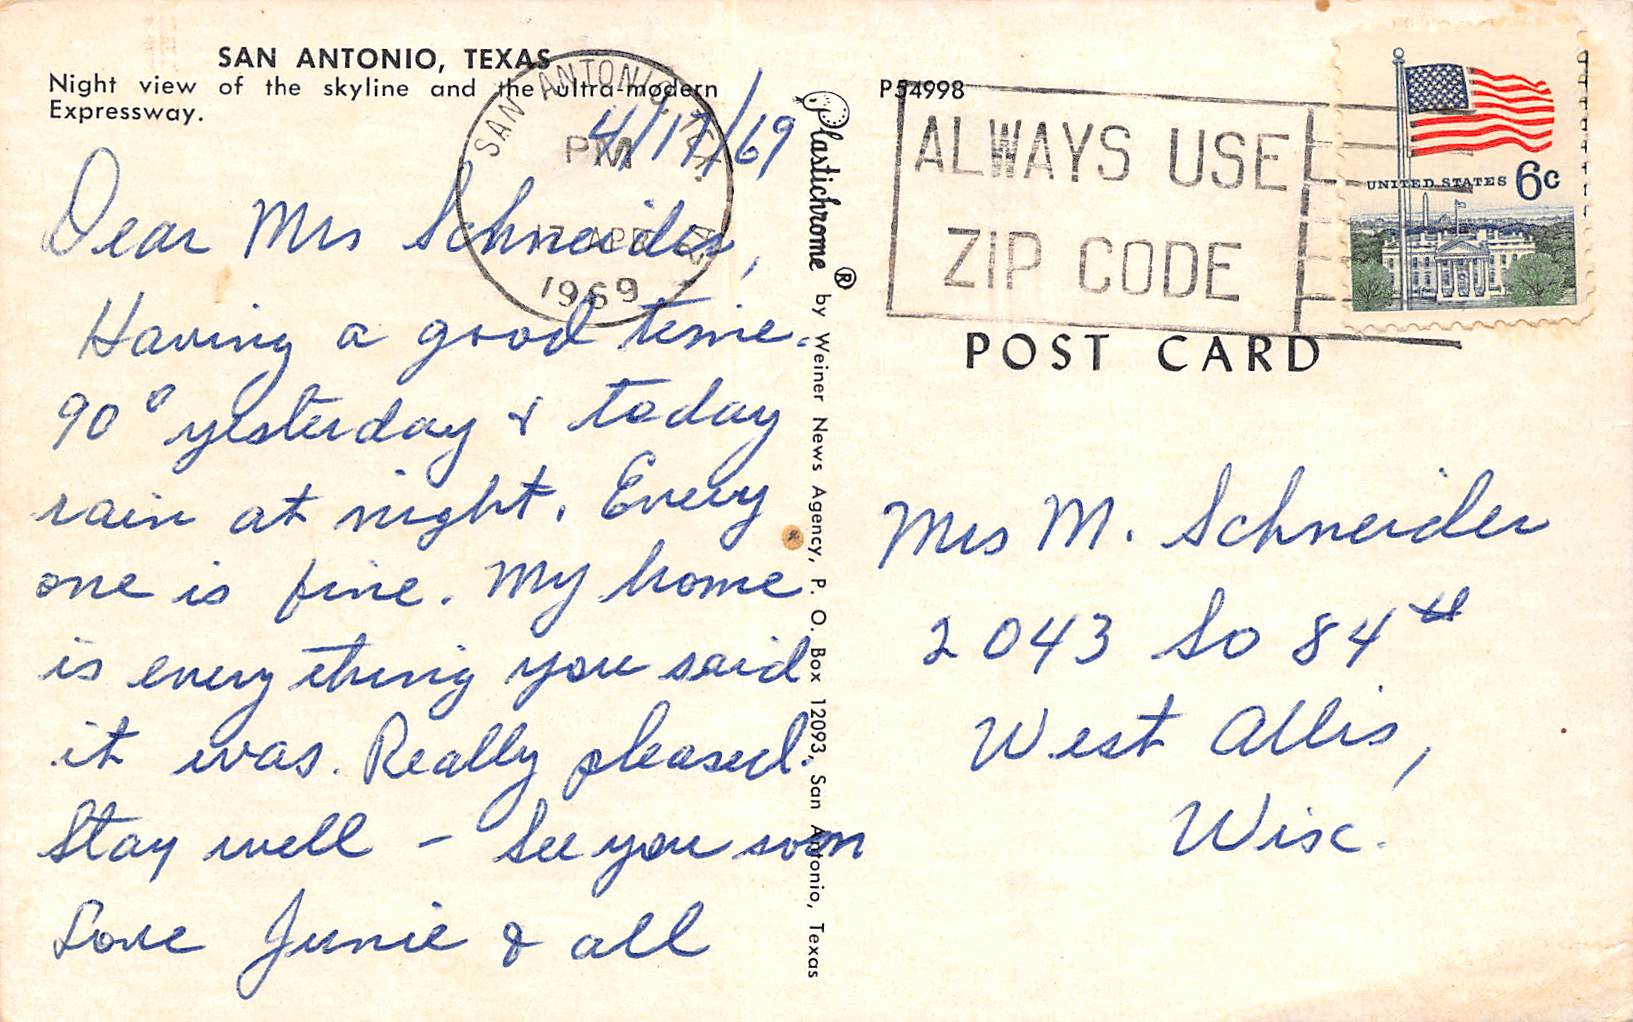 SAN ANTONIO, TEXAS
Night view of the skyline and the ultra-modern
Expressway.
SAN ANTONIO, TEX.
PM
17 APR
1969
4/17/69
Dear Mrs Schneider,
Having a good time.
90° yesterday & today
rain at night. Every
one is fine. My home
is every thing you said
it was. Really pleased.
Stay well – See you soon
Love Junie & all
Plastichrome ® by Weiner News Agency, P. O. Box 12093, San Antonio, Texas
P54998
ALWAYS USE
ZIP CODE
UNITED STATES 6c
POST CARD
Mrs M. Schneider
2043 So 84th
West Allis,
Wisc.